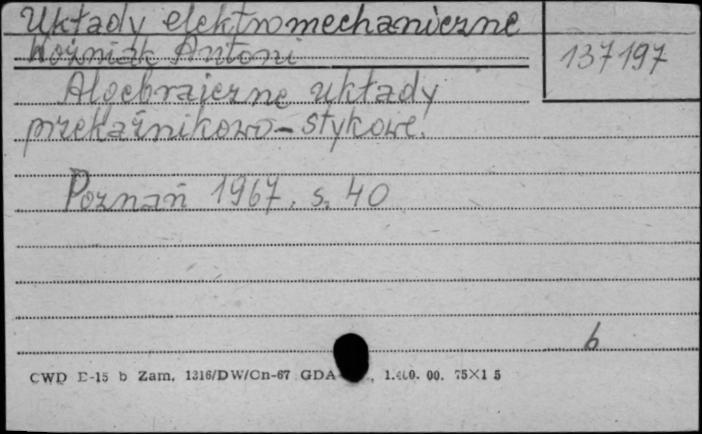 Układy elektromechaniczne
Woźniak Antoni
137197
Algebraiczne układy
przekaźnikowo-stykowe.
Poznań 1967. s. 40
b
CWD E-15 b Zam. 1316/DW/On-67 GDA